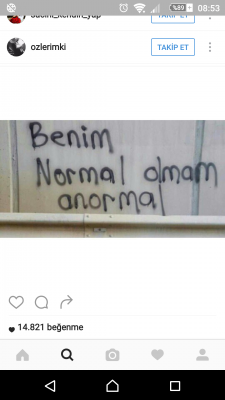 %89 08:53
TAKİP ET
ozlerimki
TAKİP ET
Benim
Normal olmam
anormal
14.821 beğenme